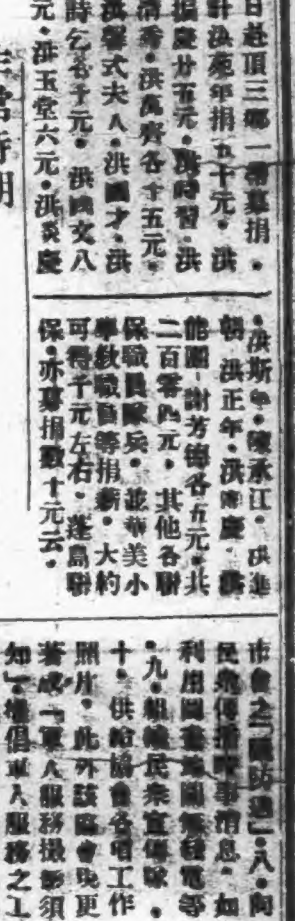 日赴頂三鄉一帶募捐。
計洪苑年捐五十元。洪
捐慶廿五元。洪時習。洪
清秀。洪萬齊各十五元。
洪馨式夫人。洪國才。洪
時乞各千元。洪成文八
元。洪玉堂六元。洪炎慶
。洪斯。陳承江。洪進
朝。洪正年。洪慶。洪
能願。謝芳德各五元。共
二百零四元。其他各聯
保職員隊兵。並華美小
學教職員等捐薪。大約
可得千元左右。蓬島聯
保。亦募捐數十元云。
市會之「國防週」。八。向
民衆傳播時事消息。如
利用圖畫地圖無線電等
。九。組織民衆宣傳隊。
十。供給協會各項工作
照片。此外該協會現更
著成「軍人服務撮影須
知」。提倡軍人服務之工